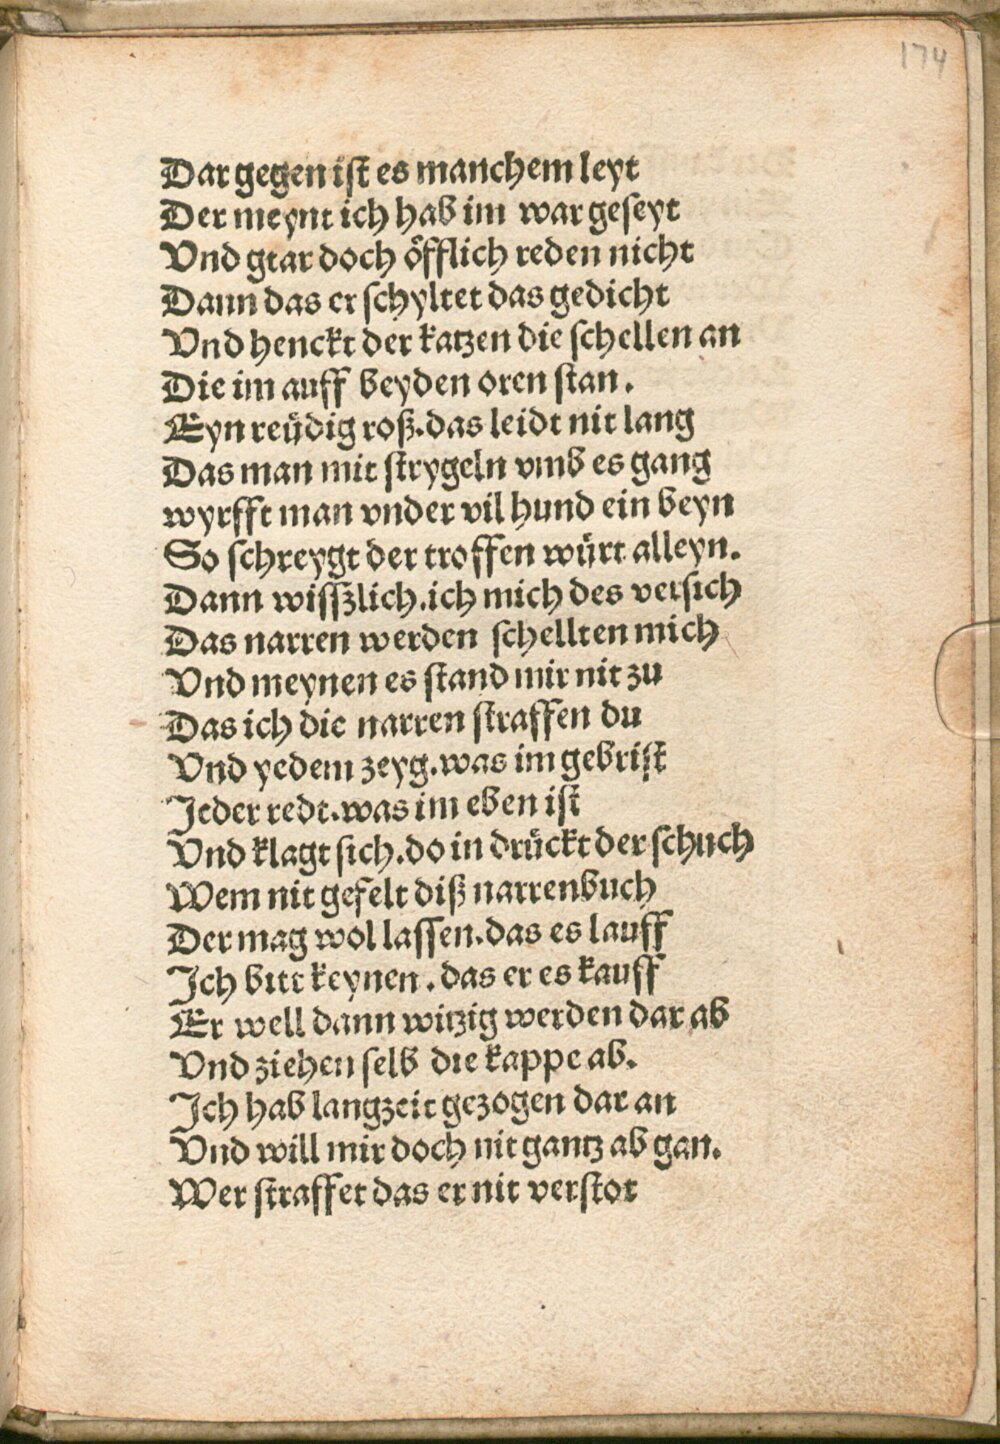 174
Dar gegen ist es manchem leyt
Der meynt ich hab im war geseyt
Vnd gtar doch öfflich reden nicht
Dann das er schyltet das gedicht
Vnd henckt der katzen die schellen an
Die im auff beyden oren stan.
Eyn reüdig roß.das leidt nit lang
Das man mit strygeln vmb es gang
wyrfft man vnder vil hund ein beyn
So schreygt der troffen würt alleyn.
Dann wisszlich.ich mich des versich
Das narren werden schellten mich
Vnd meynen es stand mir nit zu
Das ich die narren straffen du
Vnd yedem zeyg.was im gebrist
Jeder redt.was im eben ist
Vnd klagt sich.do in drückt der schuch
Wem nit gefelt diß narrenbuch
Der mag wol lassen.das es lauff
Ich bitt keynen.das er es kauff
Er well dann witzig werden dar ab
Vnd ziehen selb die kappe ab.
Ich hab langzeit gezogen dar an
Vnd will mir doch nit gantz ab gan.
Wer straffet das er nit verstot